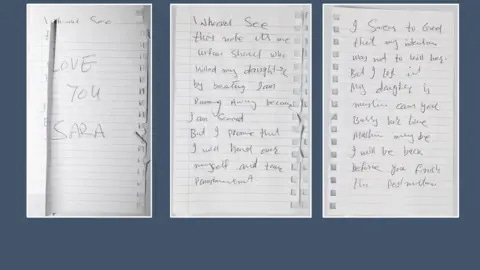 whoever See
LOVE
YOU
SARA
whoever See
this note it's me
urfan Sharif who
killed my daughter
by beating I am
Running Away because
I am Scared
But I promise that
I will Hand over
myself and take
Punishment
I Swear to God
that my intention
was not to kill her.
But I lost it
My daughter is
muslim can you
Bury her like
Muslim may be
I will be back
before you finish
the Post-mortem